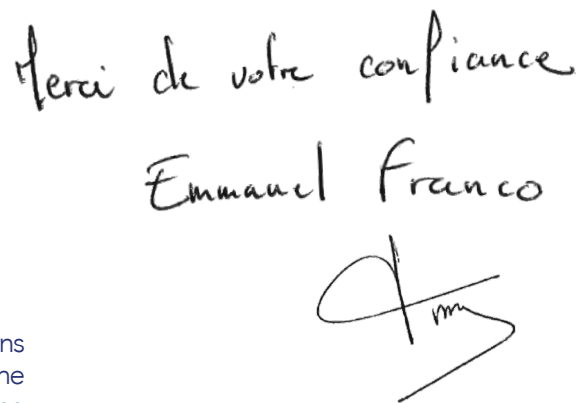 Merci de votre confiance
Emmanuel Franco
ns
ne